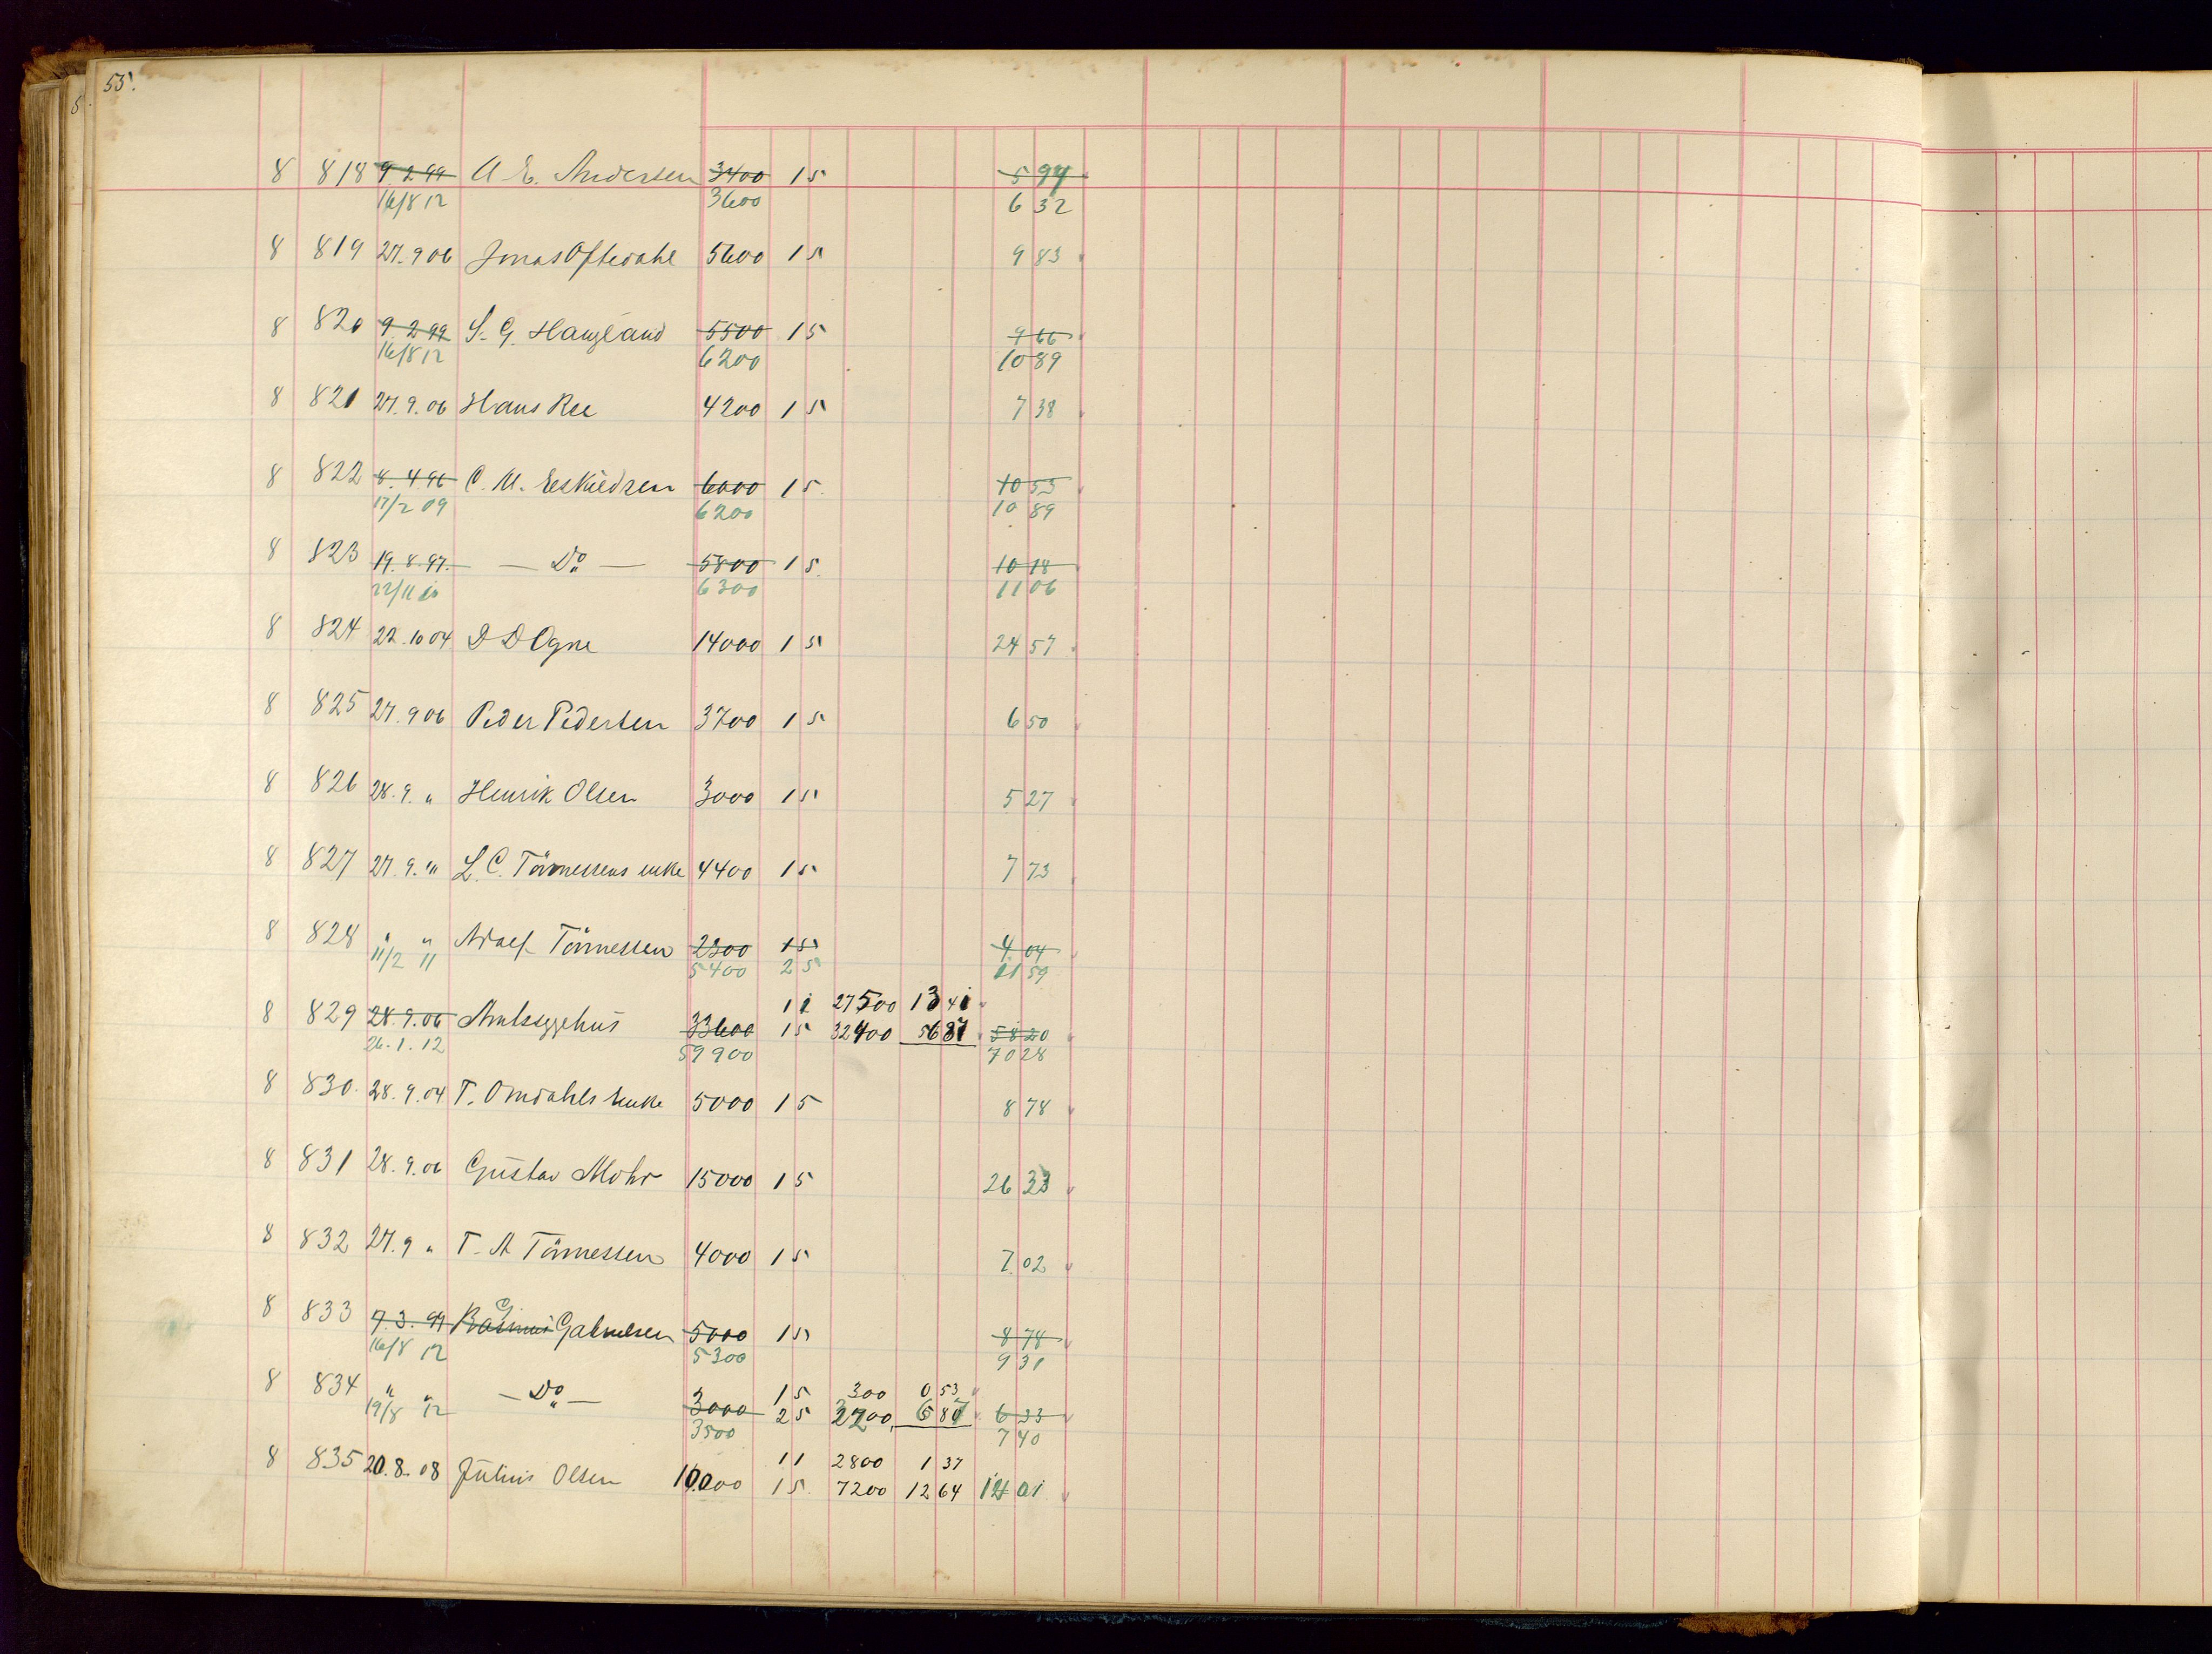 55.
8 818 9.2.99 A E. Andersen 3400 15 5 97
16/8 12 3600 6 32
8 819 27.9 06 Jonas Oftedahl 5600 15 9 83
8 820 9.2 99 S. G. Haugland 5500 15 9 66
16/8 12 6200 10 89
8 821 27.9.06 Hans Ree 4200 15 7 38
8 822 8.4 96 C. M. Eskildsen 6000 15 10 53
17/2 09 6200 10 89
8 823 19.8.97. — Do — 5800 15 10 18
22/11 10 6300 11 06
8 824 22.10 04 D D Ogne 14000 15 24 57
8 825 27.9 06 Peder Pedersen 3700 15 6 50
8 826 28.9. " Henrik Olsen 3000 15 5 27
8 827 27.9. " L. C. Tönnessens enke 4400 15 7 73
8 828 " " Adolf Tönnessen 2300 15 4 04
11/2 11 5400 25 11 59
11 27500 13 41
8 829 28.9.06 Amtssygehus 33600 15 32400 56 87 58 20
26.1.12 59900 70 28
8 830. 28.9.04 T. Omdahls enke 5000 15 8 78
8 831 28.9.06 Gustav Mohr 15000 15 26 33
8 832 27.9 " T. A Tönnessen 4000 15 7 02
8 833 7.3.99 Rasmus G Gabrielsen 5000 15 8 78
16/8 12 5300 9 31
8 834 " " — Do — 15 300 0 53
19/8 12 3000 25 3200 6 87 6 33
3500 7 40
11 2800 1 37
8 835 20.8.08 Julius Olsen 10000 15 7200 12 64 14 01